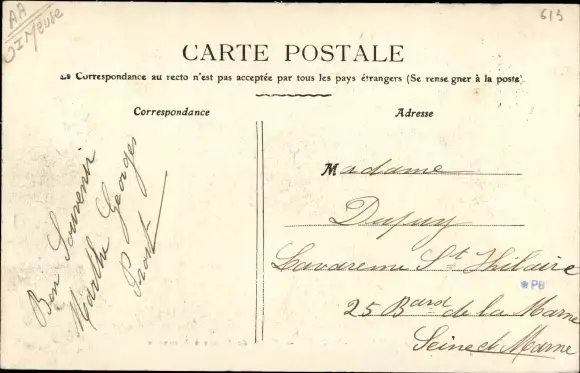 AA
Meuse
613
CARTE POSTALE
La Correspondance au recto n'est pas acceptée par tous les pays étrangers (Se rense gner à la poste)
Correspondance
Adresse
Bon Souvenir
Marthe Georges
Madame
Dupuy
Lavarenne St Hilaire
*PB
25 Bard de la Marne
Seine et Marne